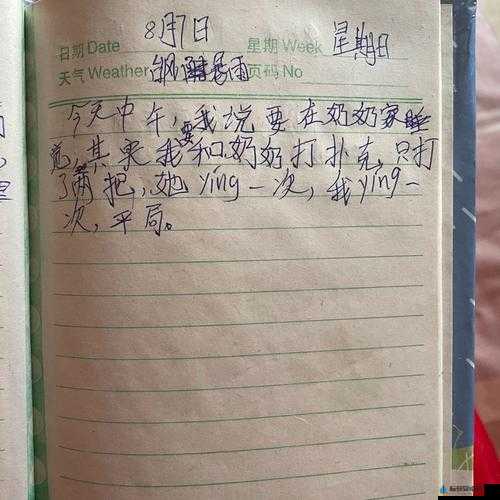 8月7日
日期 Date 星期 Week 星期日
天气 Weather 雨 页码 No
今天中午,我说要在奶奶家睡
觉,其实我要和奶奶打扑克,只打
了两把,她ying一次,我ying一
次,平局。